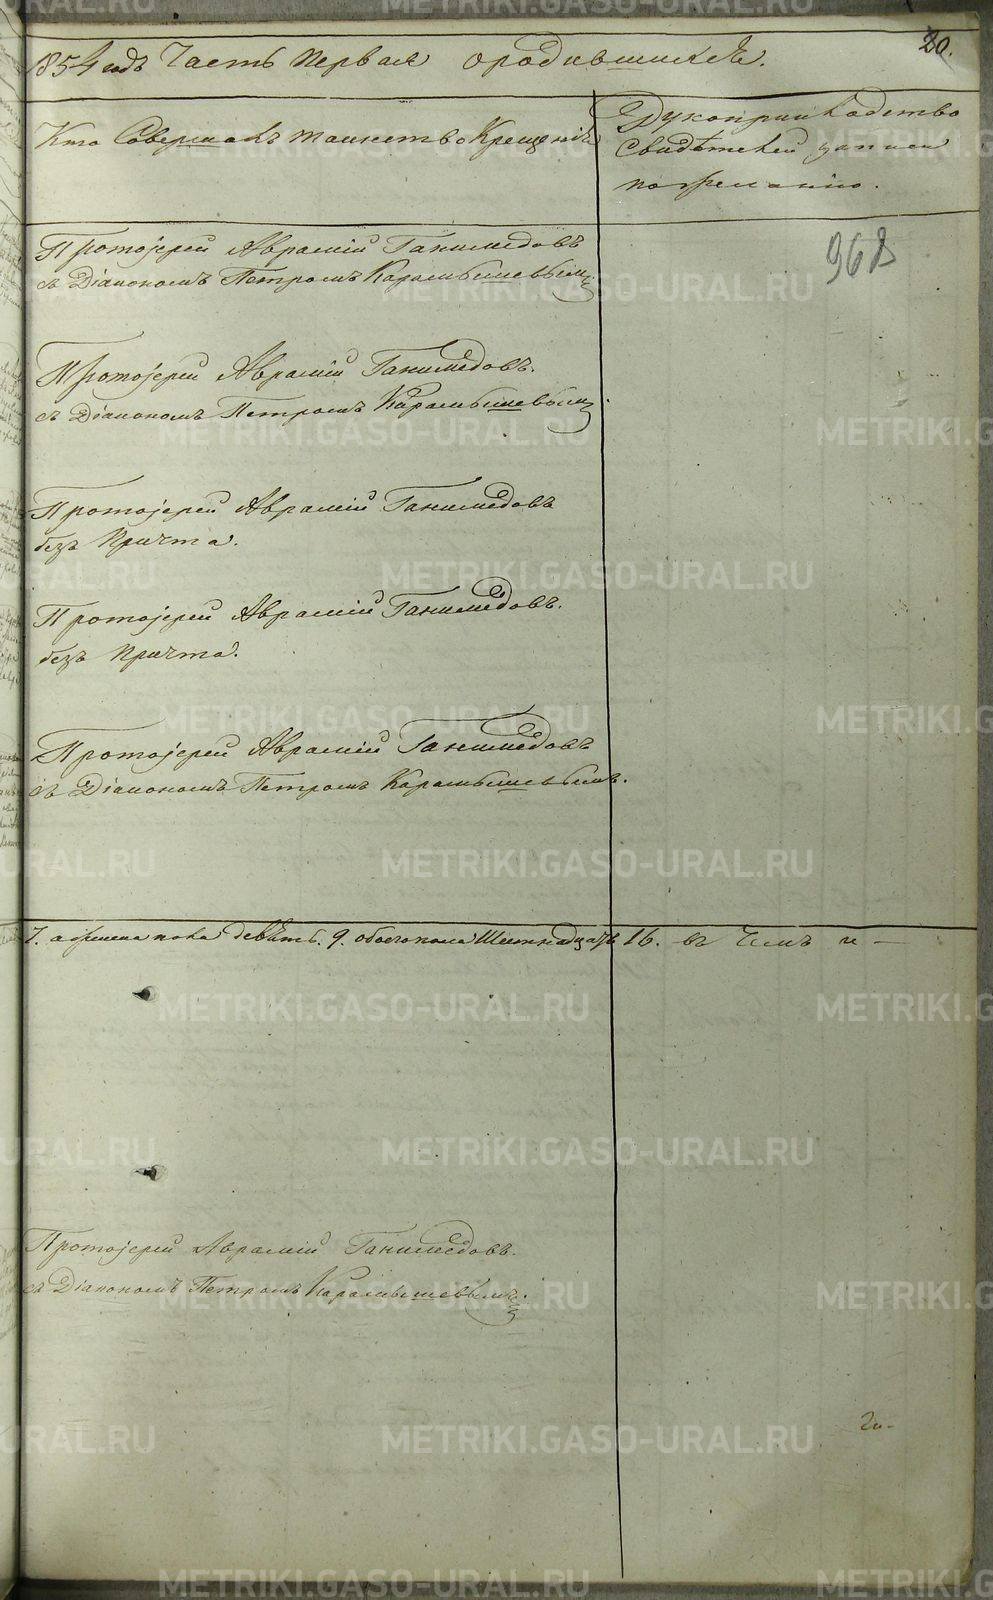 1854 годъ Часть Первая о родившихся.
20.
Кто Совершалъ таинство Крещенія
Рукоприкладство
Свидѣтелей записи
по желанію.
968
Протоіерей Аврамій Ганимедовъ
съ Діакономъ Петромъ Карамышевымъ
Протоіерей Аврамій Ганимедовъ.
съ Діакономъ Петромъ Карамышевымъ.
Протоіерей Аврамій Ганимедовъ
безъ Причта.
Протоіерей Аврамій Ганимедовъ.
безъ Причта.
Протоіерей Аврамій Ганимедовъ
съ Діакономъ Петромъ Карамышевымъ.
7. а женска пола девять. 9. обоего пола Шестнадцать 16. въ чемъ и —
Протоіерей Аврамій Ганимедовъ.
съ Діакономъ Петромъ Карамышевымъ.
METRIKI.GASO-URAL.RU